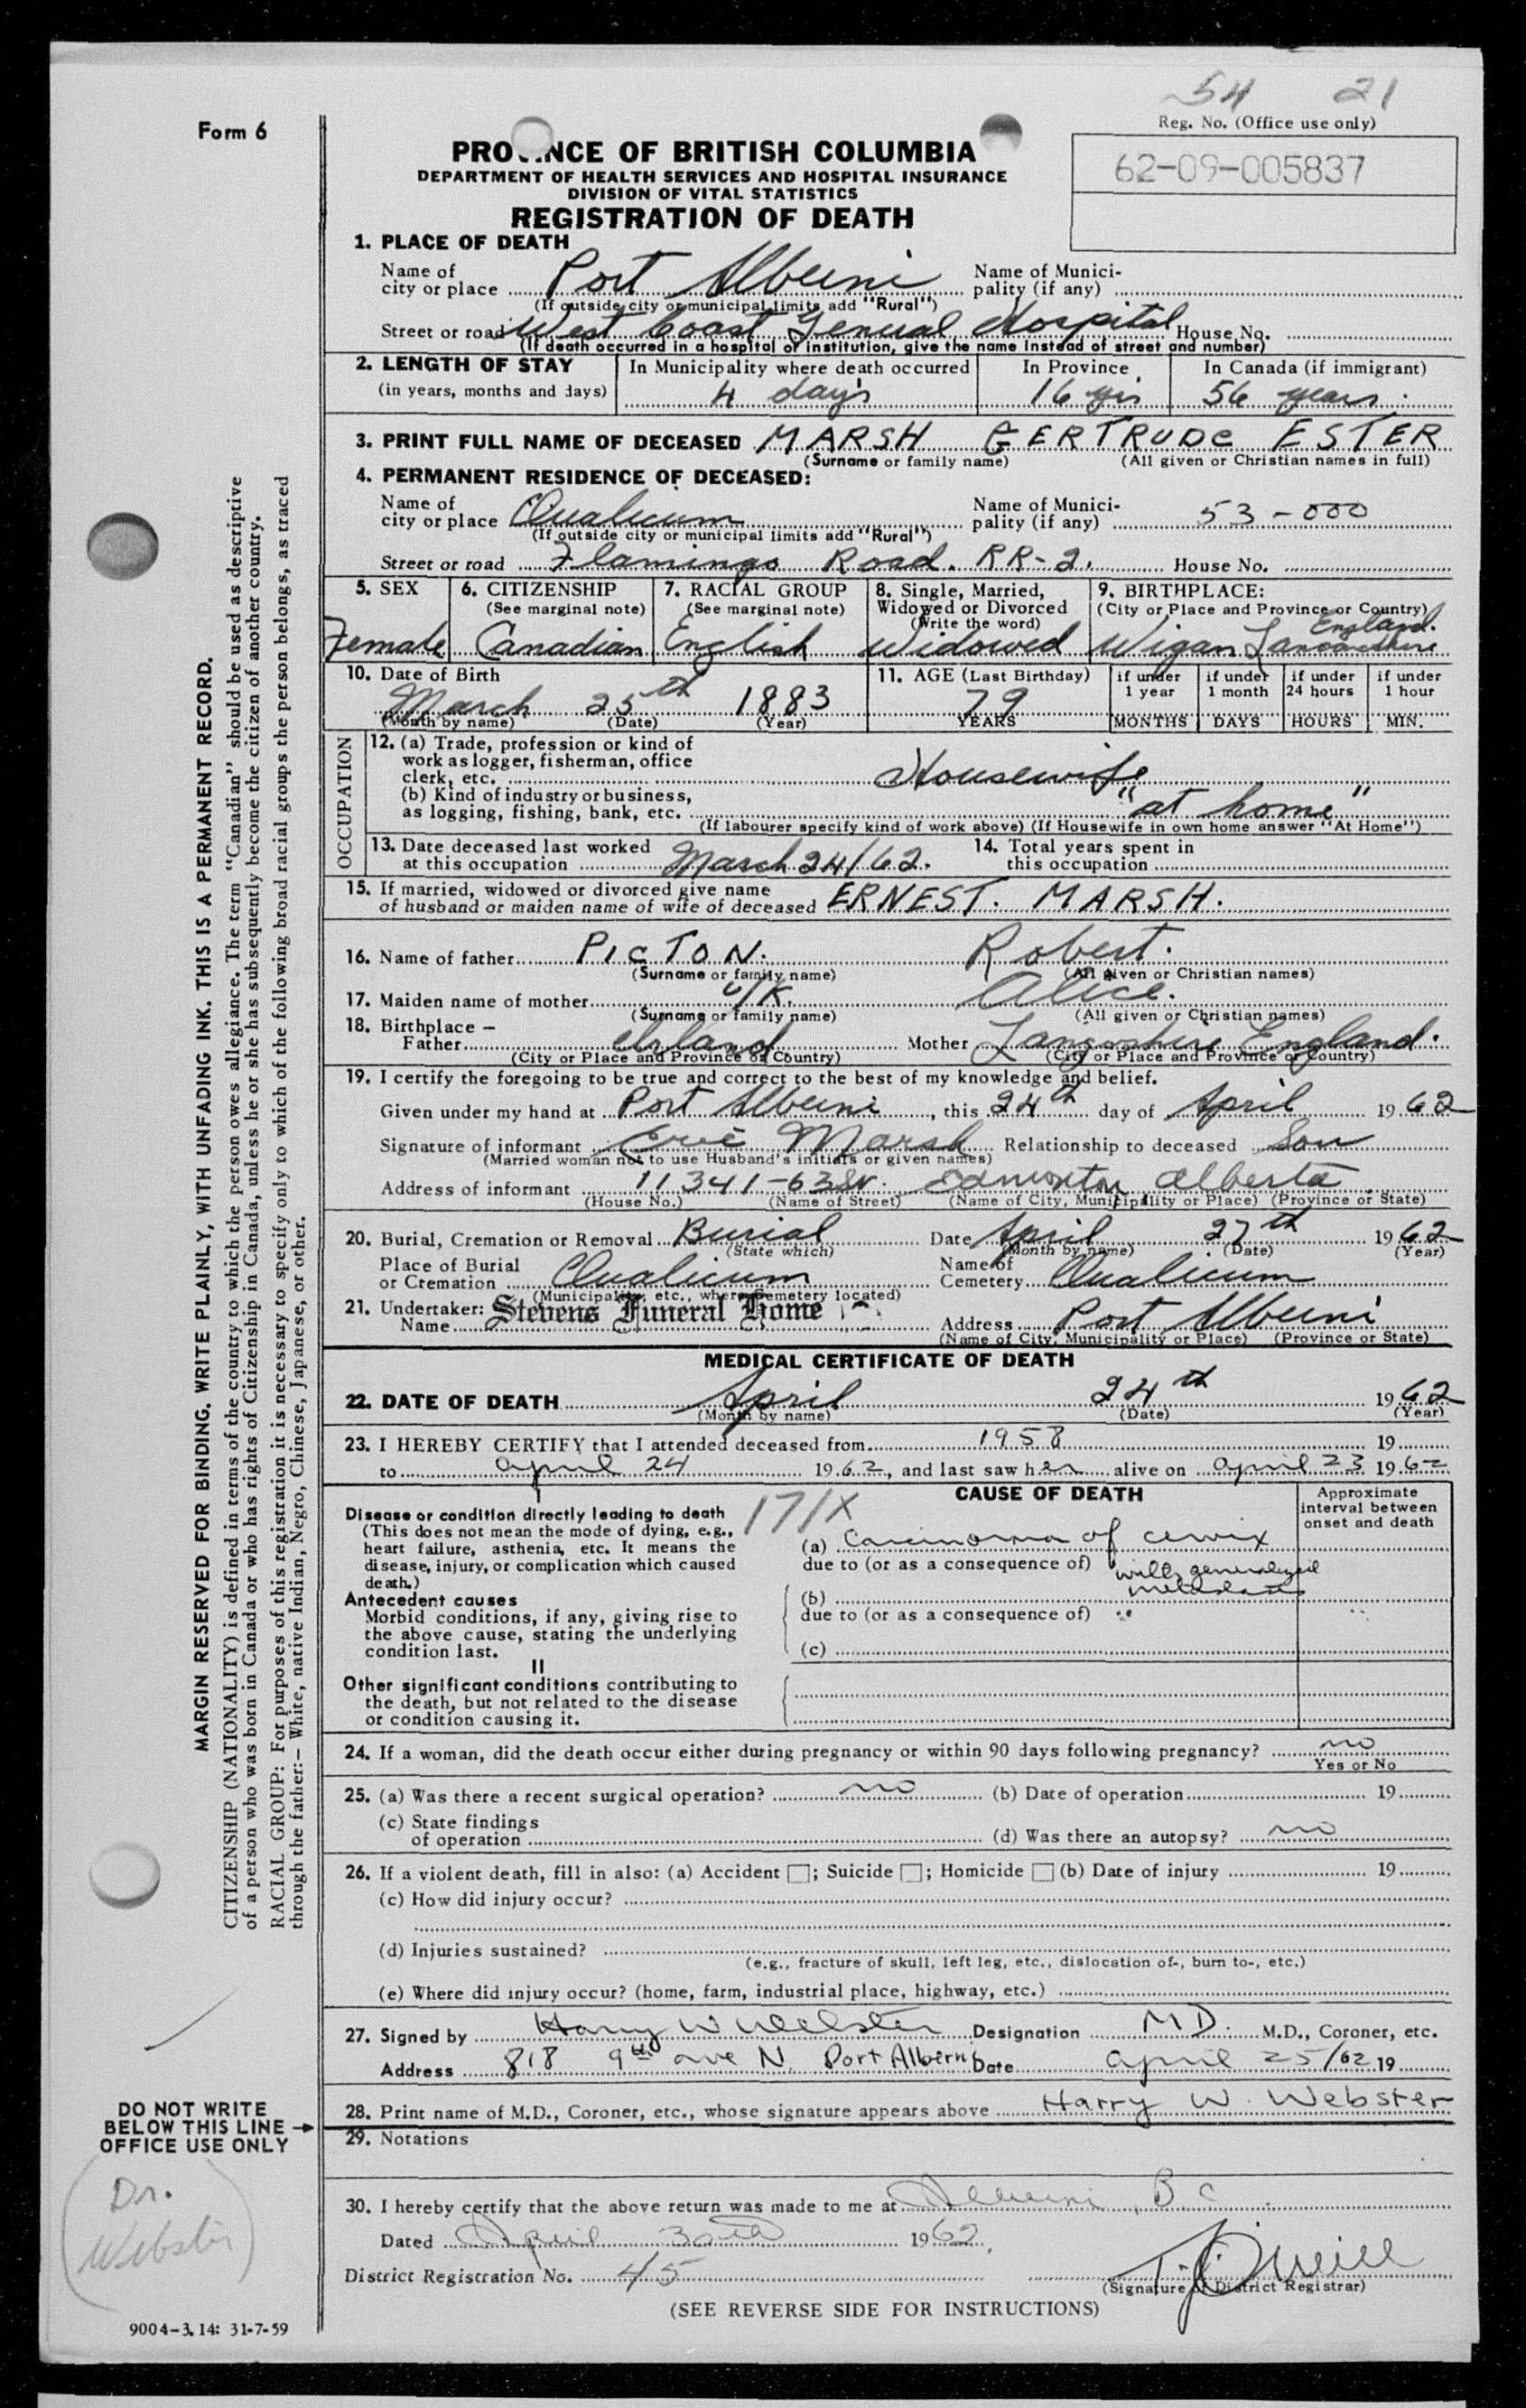 54 21
Form 6
Reg. No. (Office use only)
62-09-005837
PROVINCE OF BRITISH COLUMBIA
DEPARTMENT OF HEALTH SERVICES AND HOSPITAL INSURANCE
DIVISION OF VITAL STATISTICS
REGISTRATION OF DEATH
1. PLACE OF DEATH
Name of city or place Port Alberni Name of Municipality (if any)
(If outside city or municipal limits add "Rural")
Street or road West Coast General Hospital House No.
(If death occurred in a hospital or institution, give the name instead of street and number)
2. LENGTH OF STAY In Municipality where death occurred In Province In Canada (if immigrant)
(in years, months and days) 4 days 16 yrs 56 years
3. PRINT FULL NAME OF DECEASED MARSH GERTRUDE ESTER
(Surname or family name) (All given or Christian names in full)
4. PERMANENT RESIDENCE OF DECEASED:
Name of city or place Qualicum Name of Municipality (if any) 53-000
(If outside city or municipal limits add "Rural")
Street or road Flamingo Road. RR-2. House No.
5. SEX 6. CITIZENSHIP 7. RACIAL GROUP 8. Single, Married, Widowed or Divorced 9. BIRTHPLACE:
(See marginal note) (See marginal note) (Write the word) (City or Place and Province or Country)
Female Canadian English Widowed Wigan Lancashire England.
10. Date of Birth 11. AGE (Last Birthday) if under 1 year if under 1 month if under 24 hours if under 1 hour
March 25th 1883 79
(Month by name) (Date) (Year) YEARS MONTHS DAYS HOURS MIN.
OCCUPATION
12. (a) Trade, profession or kind of
work as logger, fisherman, office
clerk, etc. Housewife
(b) Kind of industry or business,
as logging, fishing, bank, etc. "at home"
(If labourer specify kind of work above) (If Housewife in own home answer "At Home")
13. Date deceased last worked at this occupation March 24/62. 14. Total years spent in this occupation
15. If married, widowed or divorced give name
of husband or maiden name of wife of deceased ERNEST. MARSH.
16. Name of father PICTON. Robert.
(Surname or family name) (All given or Christian names)
17. Maiden name of mother U/K. Alice.
(Surname or family name) (All given or Christian names)
18. Birthplace –
Father Irland Mother Langashire England.
(City or Place and Province or Country) (City or Place and Province or Country)
19. I certify the foregoing to be true and correct to the best of my knowledge and belief.
Given under my hand at Port Alberni, this 24th day of April 1962
Signature of informant Eric Marsh Relationship to deceased Son
(Married woman not to use Husband's initials or given names)
Address of informant 11341-63 St. Edmonton Alberta
(House No.) (Name of Street) (Name of City, Municipality or Place) (Province or State)
20. Burial, Cremation or Removal Burial Date April 27th 1962
(State which) (Month by name) (Date) (Year)
Place of Burial or Cremation Qualicum Name of Cemetery Qualicum
(Municipality, etc., where Cemetery located)
21. Undertaker: Name Stevens Funeral Home Address Port Alberni
(Name of City, Municipality or Place) (Province or State)
MEDICAL CERTIFICATE OF DEATH
22. DATE OF DEATH April 24th 1962
(Month by name) (Date) (Year)
23. I HEREBY CERTIFY that I attended deceased from 1958 19
to April 24 1962, and last saw her alive on April 23 1962
I CAUSE OF DEATH Approximate interval between onset and death
171X
Disease or condition directly leading to death
(This does not mean the mode of dying, e.g.,
heart failure, asthenia, etc. It means the
disease, injury, or complication which caused
death.)
(a) Carcinoma of cervix
due to (or as a consequence of) with generalized metastases
Antecedent causes
Morbid conditions, if any, giving rise to
the above cause, stating the underlying
condition last.
(b)
due to (or as a consequence of)
(c)
II
Other significant conditions contributing to
the death, but not related to the disease
or condition causing it.
24. If a woman, did the death occur either during pregnancy or within 90 days following pregnancy? no
Yes or No
25. (a) Was there a recent surgical operation? no (b) Date of operation 19
(c) State findings
of operation (d) Was there an autopsy? no
26. If a violent death, fill in also: (a) Accident ; Suicide ; Homicide (b) Date of injury 19
(c) How did injury occur?
(d) Injuries sustained?
(e.g., fracture of skull, left leg, etc., dislocation of-, burn to-, etc.)
(e) Where did injury occur? (home, farm, industrial place, highway, etc.)
27. Signed by Harry W Webster Designation M D. M.D., Coroner, etc.
Address 818 9th ave N. Port Alberni Date April 25/62 19
28. Print name of M.D., Coroner, etc., whose signature appears above Harry W. Webster
29. Notations
30. I hereby certify that the above return was made to me at Alberni, B C
Dated April 30th 1962,
District Registration No. 45 T. J. O'Neill
(Signature of District Registrar)
(SEE REVERSE SIDE FOR INSTRUCTIONS)
MARGIN RESERVED FOR BINDING. WRITE PLAINLY, WITH UNFADING INK. THIS IS A PERMANENT RECORD.
CITIZENSHIP (NATIONALITY) is defined in terms of the country to which the person owes allegiance. The term "Canadian" should be used as descriptive
of a person who was born in Canada or who has rights of Citizenship in Canada, unless he or she has subsequently become the citizen of another country.
RACIAL GROUP: For purposes of this registration it is necessary to specify only to which of the following broad racial groups the person belongs, as traced
through the father:– White, native Indian, Negro, Chinese, Japanese, or other.
DO NOT WRITE
BELOW THIS LINE →
OFFICE USE ONLY
(Dr.
Webster)
9004-3.14: 31-7-59